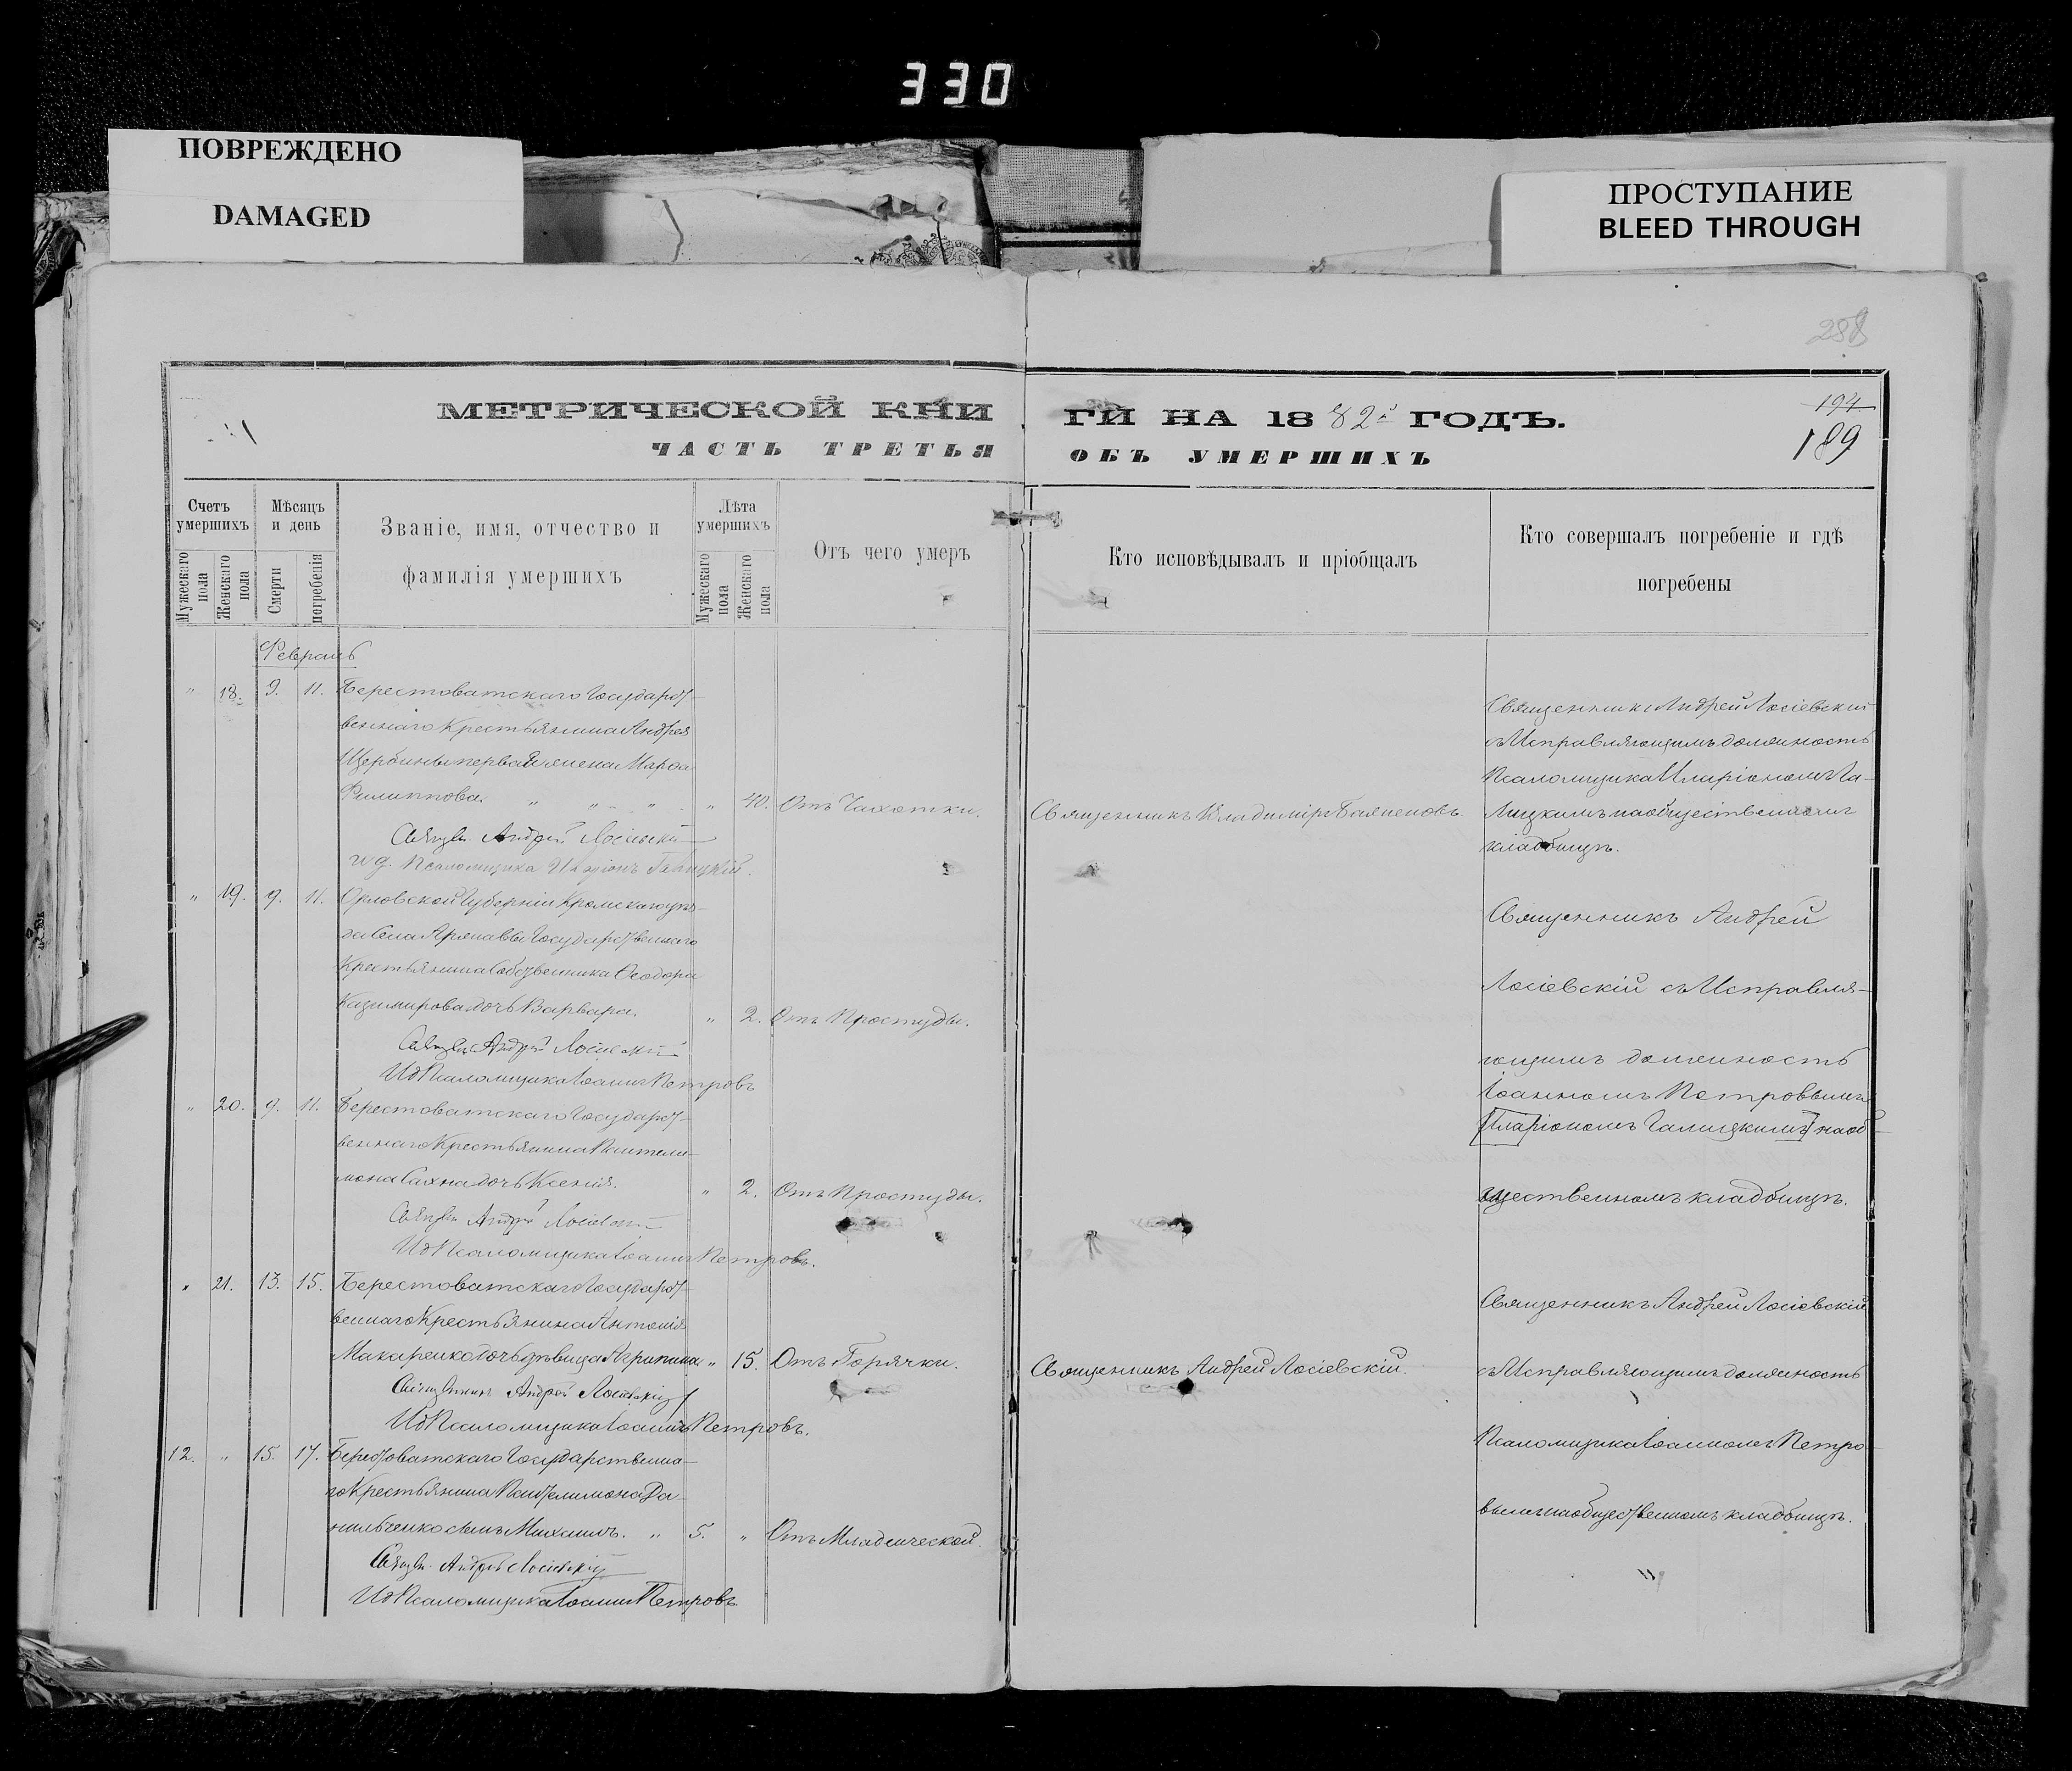 330
ПОВРЕЖДЕНО
DAMAGED
ПРОСТУПАНИЕ
BLEED THROUGH
194
189
МЕТРИЧЕСКОЙ КНИ ГИ НА 1882й ГОДЪ.
ЧАСТЬ ТРЕТЬЯ ОБЪ УМЕРШИХЪ
Счетъ умершихъ
Мужескаго пола
Женскаго пола
Мѣсяцъ и день
Смерти
погребенія
Званіе, имя, отчество и
фамилія умершихъ
Лѣта умершихъ
Мужескаго пола
Женскаго пола
Отъ чего умеръ
Кто исповѣдывалъ и пріобщалъ
Кто совершалъ погребеніе и гдѣ
погребены
Февраль
" 18. 9. 11. Берестоватскаго Государст-
веннаго Крестьянина Андрея
Щербины первая жена Марфа
Филиппова. " " " " 40. Отъ Чахотки.
Священникъ Владиміръ
Священникъ Андрей Лосіевскій
съ Исправляющимъ должность
Псаломщика Иларіономъ Га-
лицкимъ на общественномъ
кладбищѣ.
Священ. Андрей Лосіевскій
И д. Псаломщика Иларіонъ Галицкій.
" 19. 9. 11. Орловской Губерніи Кромскаго уѣз-
да Села Государственнаго
Крестьянина Собственника Ѳеодора
Казимирова дочь Варвара. " 2. Отъ Простуды.
Священ. Андрей Лосіевскій
И д Псаломщика Іоаннъ Петровъ
Священникъ Андрей
Лосіевскій съ Исправля-
ющимъ должность
Іоанномъ Петровымъ
[Иларіономъ Галицкимъ] на об-
щественномъ кладбищѣ.
" 20. 9. 11. Берестоватскаго Государст-
веннаго Крестьянина Пантели-
мона Сахна дочь Ксенія. " 2. Отъ Простуды.
Священ. Андрей Лосіевскій
И д Псаломщика Іоаннъ Петровъ.
" 21. 13. 15. Берестоватскаго Государст-
веннаго Крестьянина Антонія
Макаренко дочь дѣвица Агрипина " 15. Отъ Горячки.
Священникъ Андрей Лосіевскій.
Священникъ Андрей Лосіевскій
И д Псаломщика Іоаннъ Петровъ.
Священникъ Андрей Лосіевскій
съ Исправляющимъ должность
Псаломщика Іоанномъ Петро-
вымъ на общественномъ кладбищѣ.
12. " 15. 17. Берестоватскаго Государственна-
го Крестьянина Пантелимона Да-
нильченко сынъ Михаилъ. " 5. " Отъ Младенческой.
Священ. Андрей Лосіевскій
И д Псаломщика Іоаннъ Петровъ.